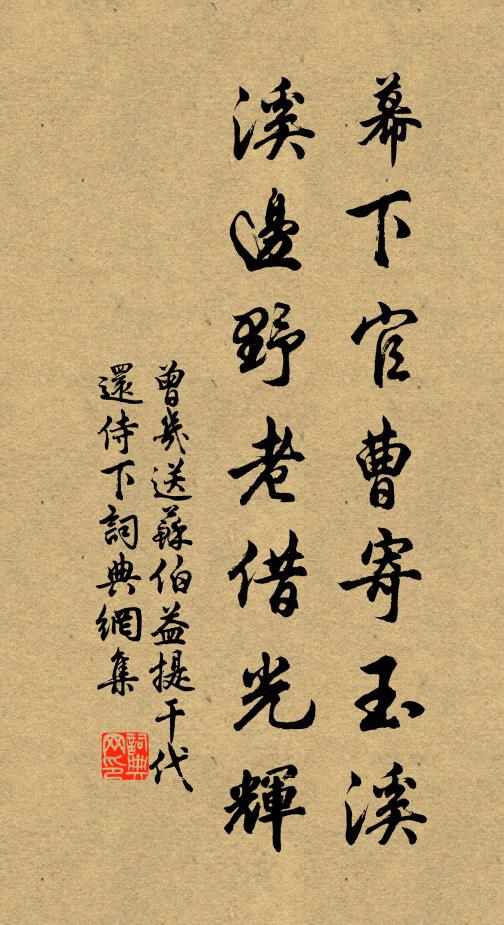 幕下官曹寄玉溪
溪邊野老借光輝
曾幾送蘇伯益提干代
還侍下詞典網集
詞典網印